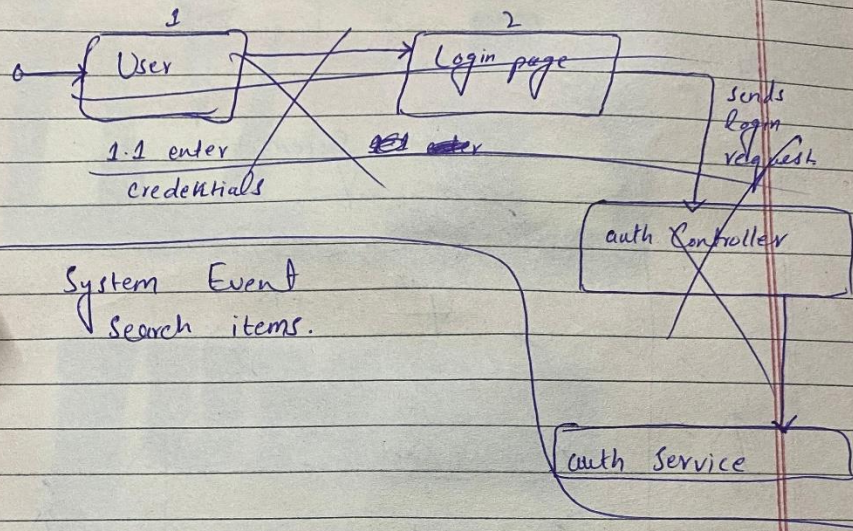 1
2
User
Login page
sends
login
request
1.1 enter
credentials
auth Controller
System Event
Search items.
auth Service